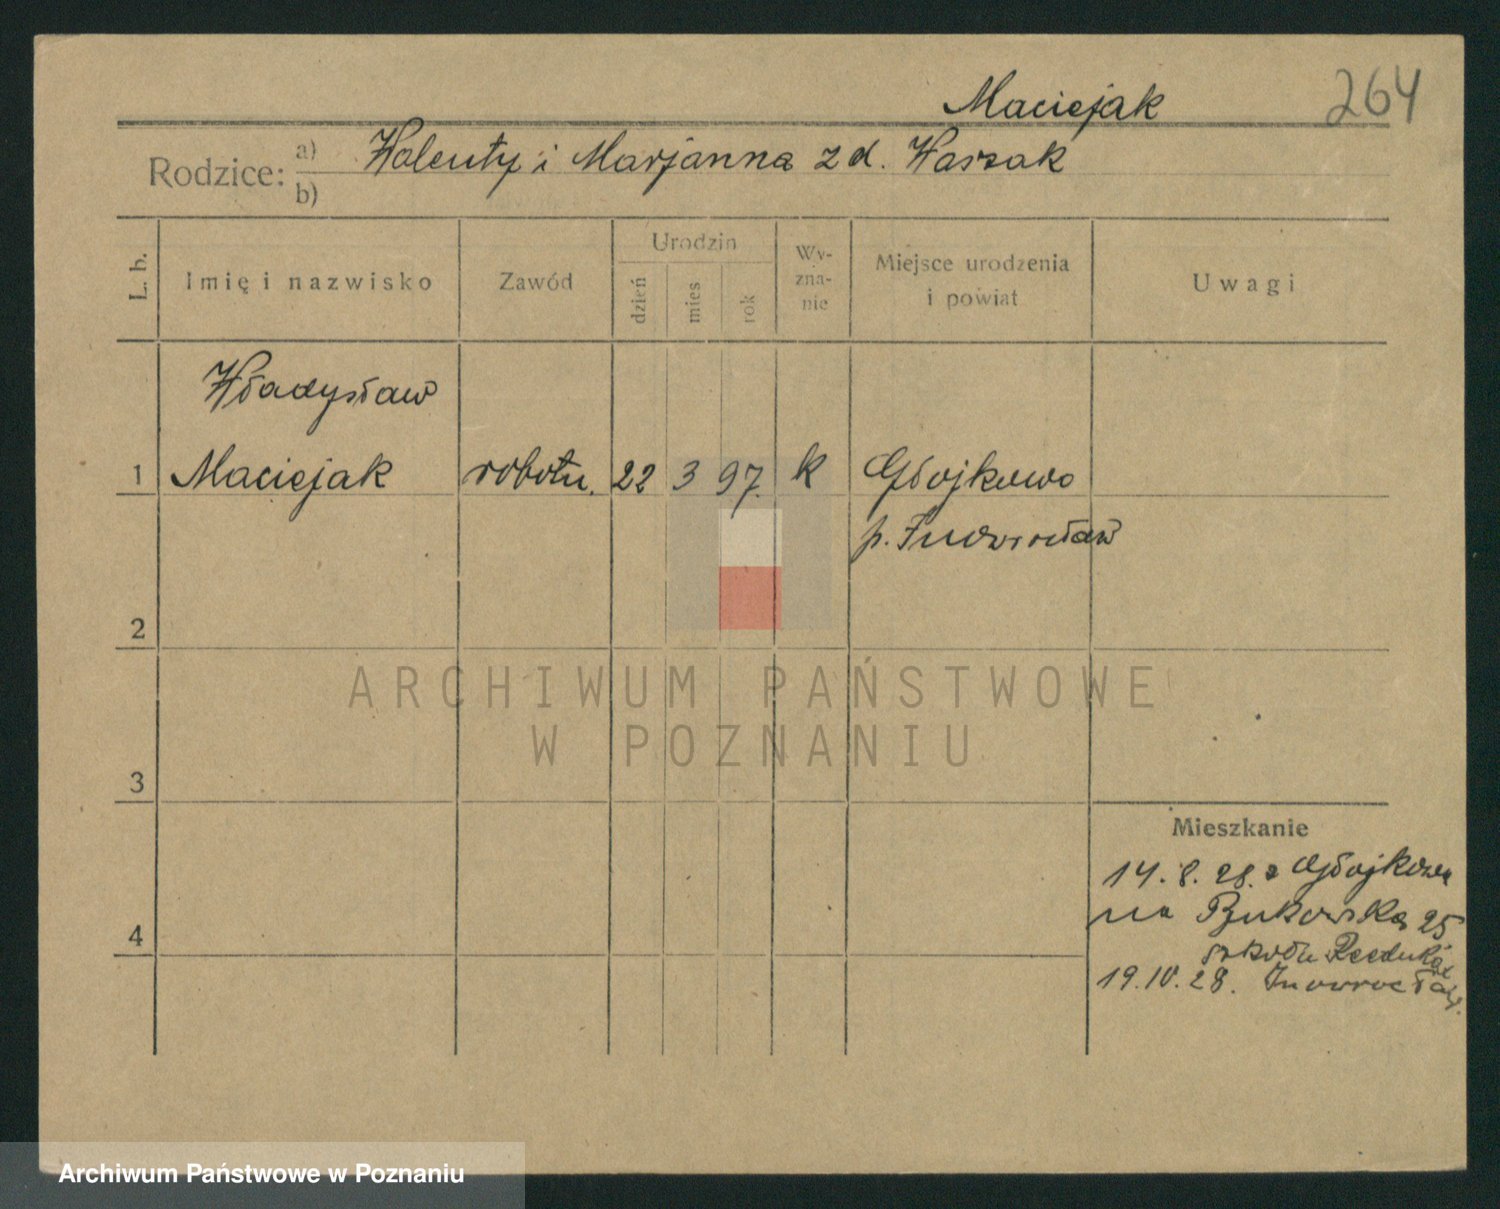 Maciejak 264
Rodzice: a) Walenty i Marjanna z d. Waszak
b)
L. b. Imię i nazwisko Zawód Urodzin dzień mies rok Wy-zna-nie Miejsce urodzenia i powiat Uwagi
Władysław
1 Maciejak robotn. 22 3 97. k Głojkowo
p. Inowrocław
2
ARCHIWUM PAŃSTWOWE
W POZNANIU
3
Mieszkanie
14.8.28. z Głojkowa
na Bukowska 25
4
szkoła Reeduka
19.IV.28. Inowrocław.
Archiwum Państwowe w Poznaniu